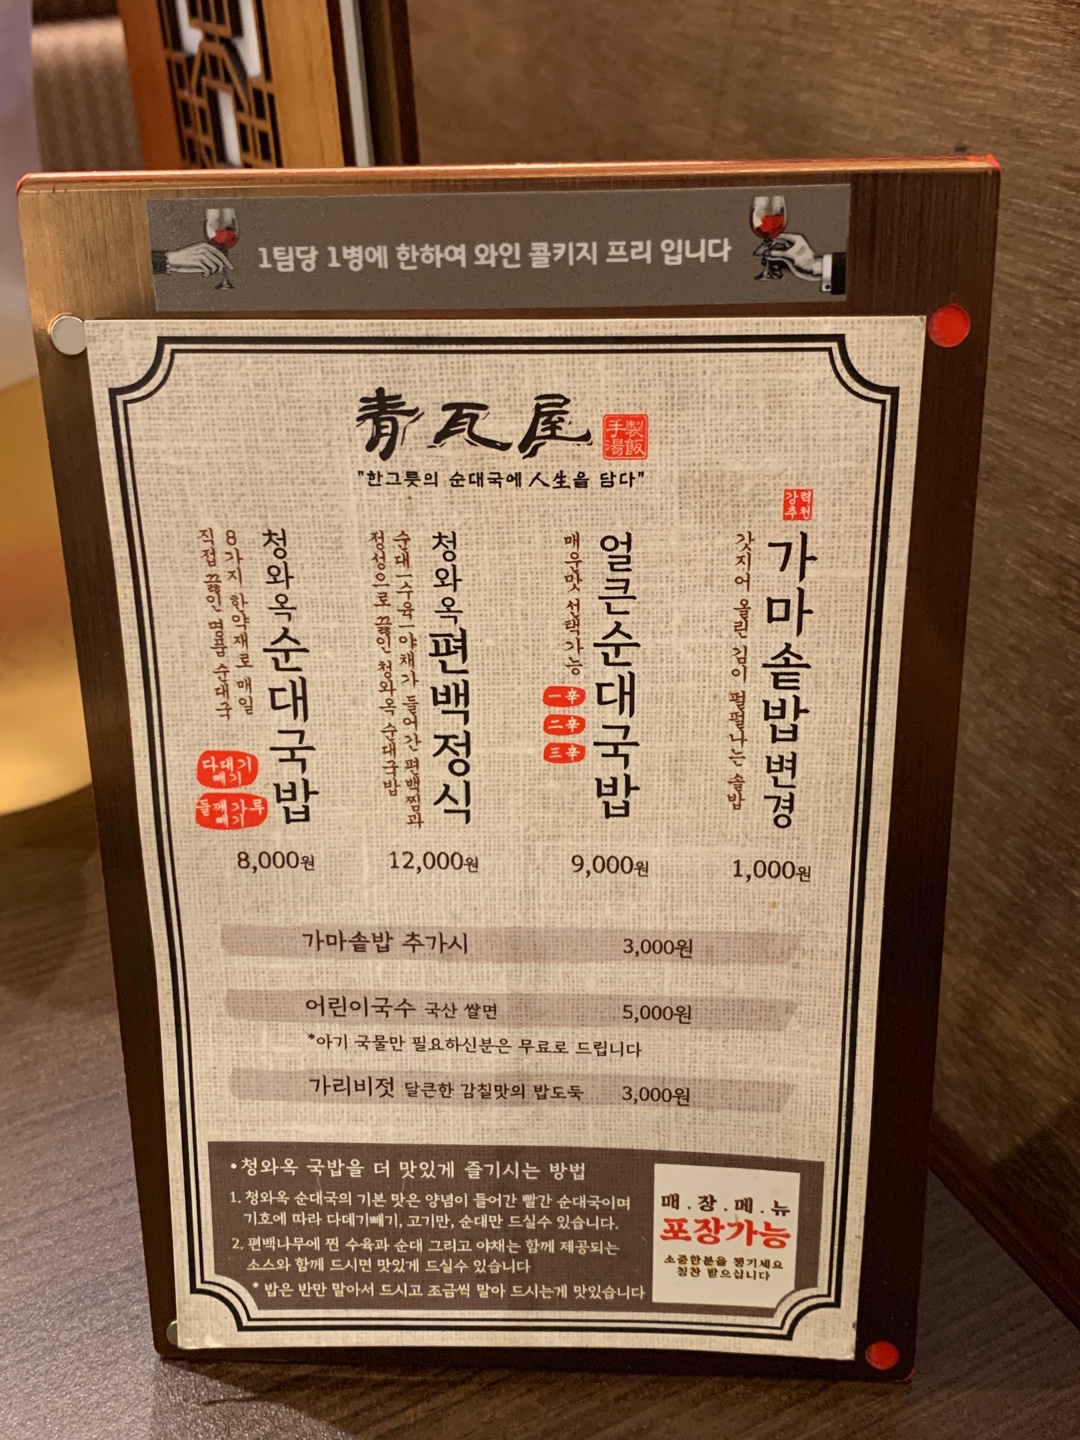 1팀당 1병에 한하여 와인 콜키지 프리 입니다
青瓦屋
手製
湯飯
"한그릇의 순대국에 人生을 담다"
청와옥순대국밥
8가지 한약재로 매일
직접 끓인 명품 순대국
다대기
빼기
들깨가루
빼기
8,000원
청와옥편백정식
순대-수육-야채가 들어간 편백찜과
정성으로 끓인 청와옥 순대국밥
12,000원
얼큰순대국밥
매운맛 선택가능
一辛
二辛
三辛
9,000원
강력
추천
가마솥밥변경
갓지어 올린 김이 펄펄나는 솥밥
1,000원
가마솥밥 추가시 3,000원
어린이국수 국산 쌀면 5,000원
*아기 국물만 필요하신분은 무료로 드립니다
가리비젓 달큰한 감칠맛의 밥도둑 3,000원
•청와옥 국밥을 더 맛있게 즐기시는 방법
1. 청와옥 순대국의 기본 맛은 양념이 들어간 빨간 순대국이며
기호에 따라 다데기빼기, 고기만, 순대만 드실수 있습니다.
2. 편백나무에 찐 수육과 순대 그리고 야채는 함께 제공되는
소스와 함께 드시면 맛있게 드실수 있습니다
* 밥은 반만 말아서 드시고 조금씩 말아 드시는게 맛있습니다
매.장.메.뉴
포장가능
소중한분을 챙기세요
칭찬 받으십니다